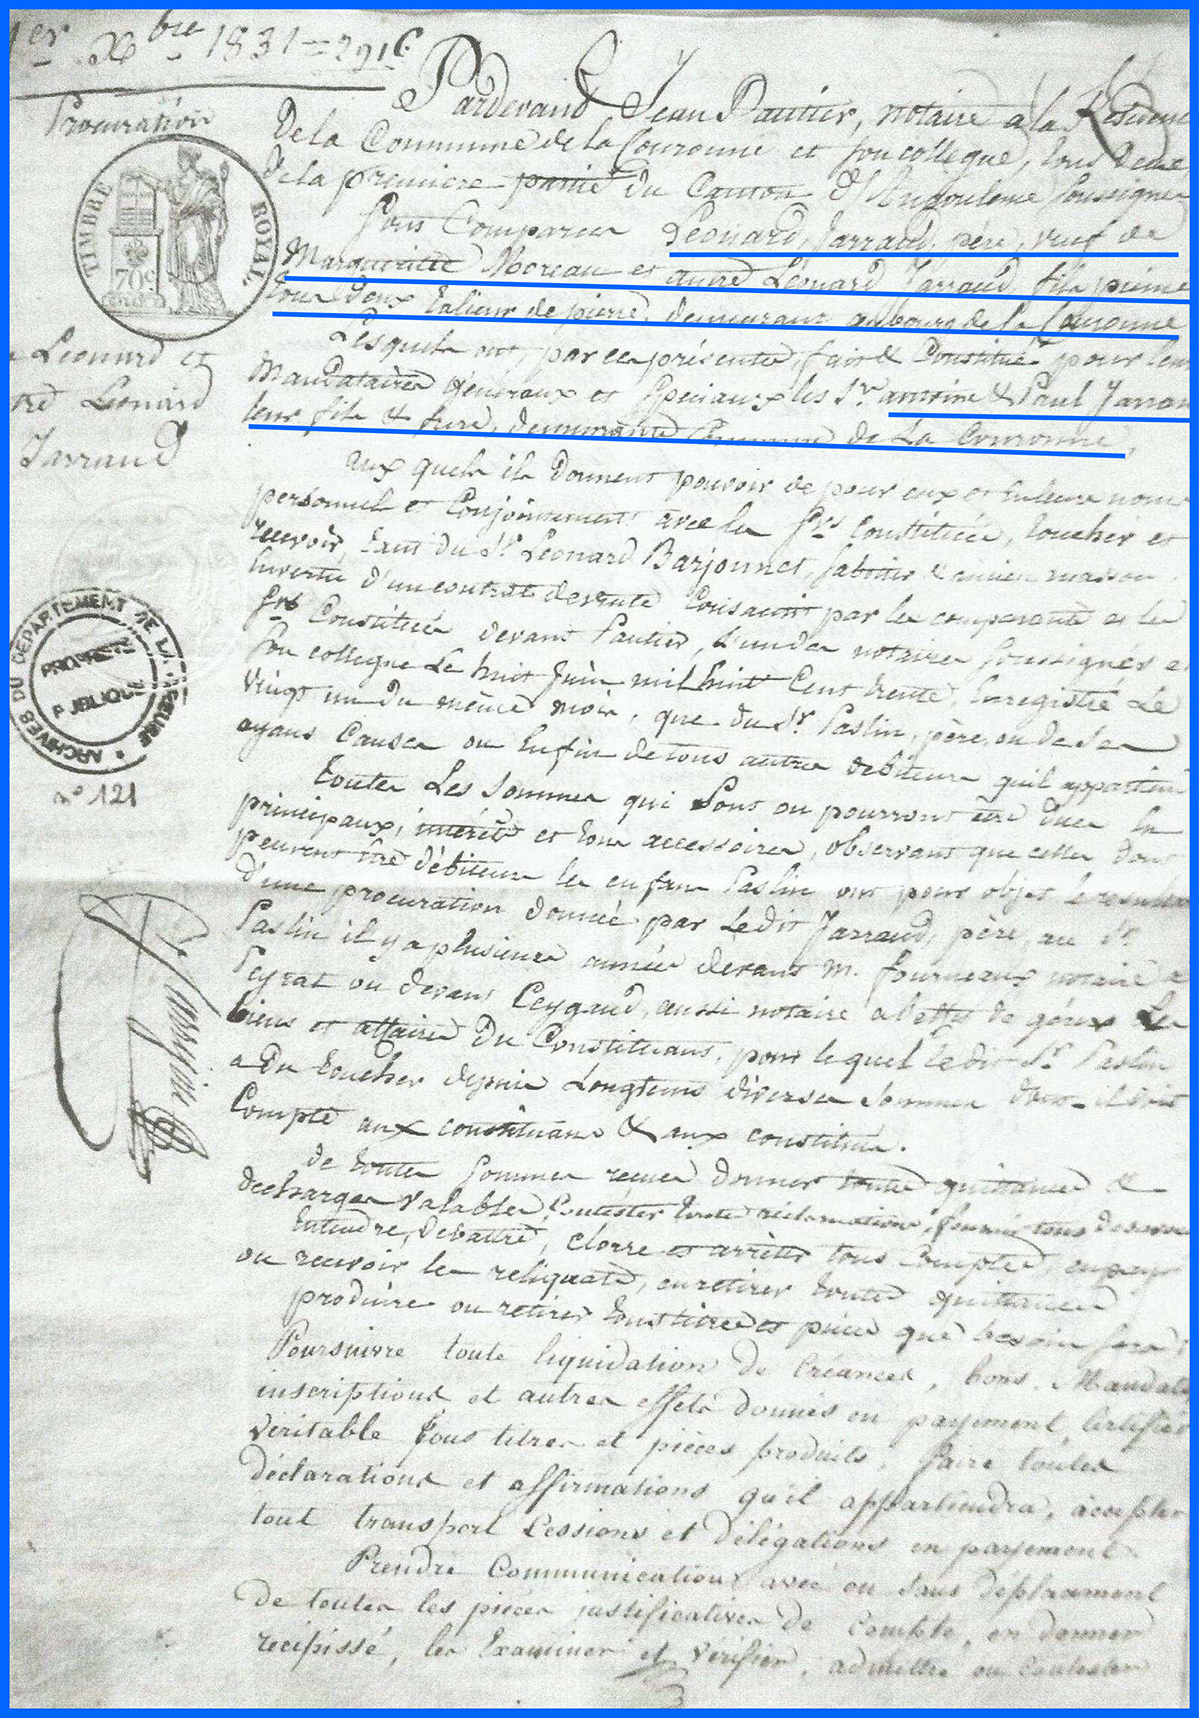 1er Xbre 1831 = 291 C.
Procuration
TIMBRE ROYAL
70c
Léonard et
Léonard
Jarraud
ARCHIVES DU DÉPARTEMENT DE LA
PROPRIÉTÉ
PUBLIQUE
no 121
Pardevant Jean Pautier, notaire a la Résidence
De la Commune de la Couronne et son collegue, tous deux
de la premiere partie du Canton d'Angouleme soussignés
Sont Comparus Léonard Jarraud, père, veuf de
Margueritte Moreau et autre Léonard Jarraud fils puiné
tous deux tailleurs de pierre, demeurant au bourg de la Couronne
Lesquels ont, par ces présentes, fait & Constitué pour leurs
Mandataires généraux et Spéciaux les Srs antoine & Paul Jarraud
leur fils & frere, demeurants Commune de La Couronne,
aux quels ils donnent pouvoir de pour eux et En leurs noms
personnel et Conjointement avec les Constitués, toucher et
recevoir, tant du Sr Léonard Barjonnet, sabotier & ancien masson
En vertu d'un contrat de vente Consenti par les comparants et les
Constitués devant Pautier, L'un des notaires soussignés et
son collegue Le huit Juin mil huit Cent trente, Enregistré Le
Vingt un du même mois, que du Sr Paslin, père, ou de ses
ayans Cause ou Enfin de tous autres débiteurs qu'il appartiendra
toutes Les Sommes qui sont ou pourront être dues En
principaux, intérêts et tous accessoires, observant que celles dont
peuvent être débiteurs les enfans Paslin ont pour objet le resultat
d'une procuration donnée par Ledit Jarraud, père, au Sr
Paslin il y a plusieurs années devant M. fourneaux notaire a
Peyrat ou devant Peygaud, aussi notaire a l'effet de gérer Les
biens et affaires Du Constituant, pour lequel le dit Sr Paslin
a Du toucher depuis Longtems diverses Sommes dont il doit
Compte aux constituans & aux constitués.
de toutes sommes recues donner toutes quittances &
decharges valables, Contester toutes réclamations, fournir tous debats
Entendre, Debattre, clorre et arrêter tous Comptes, en payer
ou recevoir les reliquats, en retirer toutes quittances
produire ou retirer tous titres et pièces que besoin sera;
Poursuivre toute liquidation de Créances, bons, Mandats
inscriptions et autres effets donnés en payement, Certifier
véritable tous titres et pièces produits, faire toutes
déclarations et affirmations qu'il appartiendra, accepter
tout transport Cessions et délégations en payement.
Prendre Communication avec ou sans déplacement
De toutes les pièces justificatives de Compte, en donner
récépissé, les Examiner et vérifier, admettre ou Contester